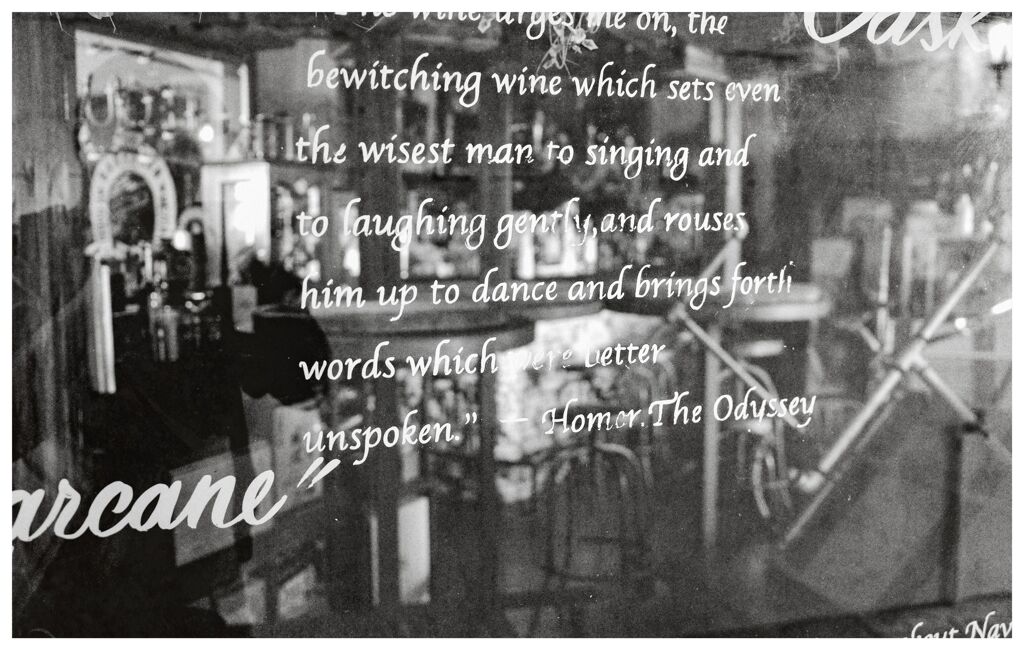 The wine urges me on, the
Cask
bewitching wine which sets even
the wisest man to singing and
to laughing gently, and rouses
him up to dance and brings forth
words which were better
unspoken." — Homer. The Odyssey
arcane"
Nav